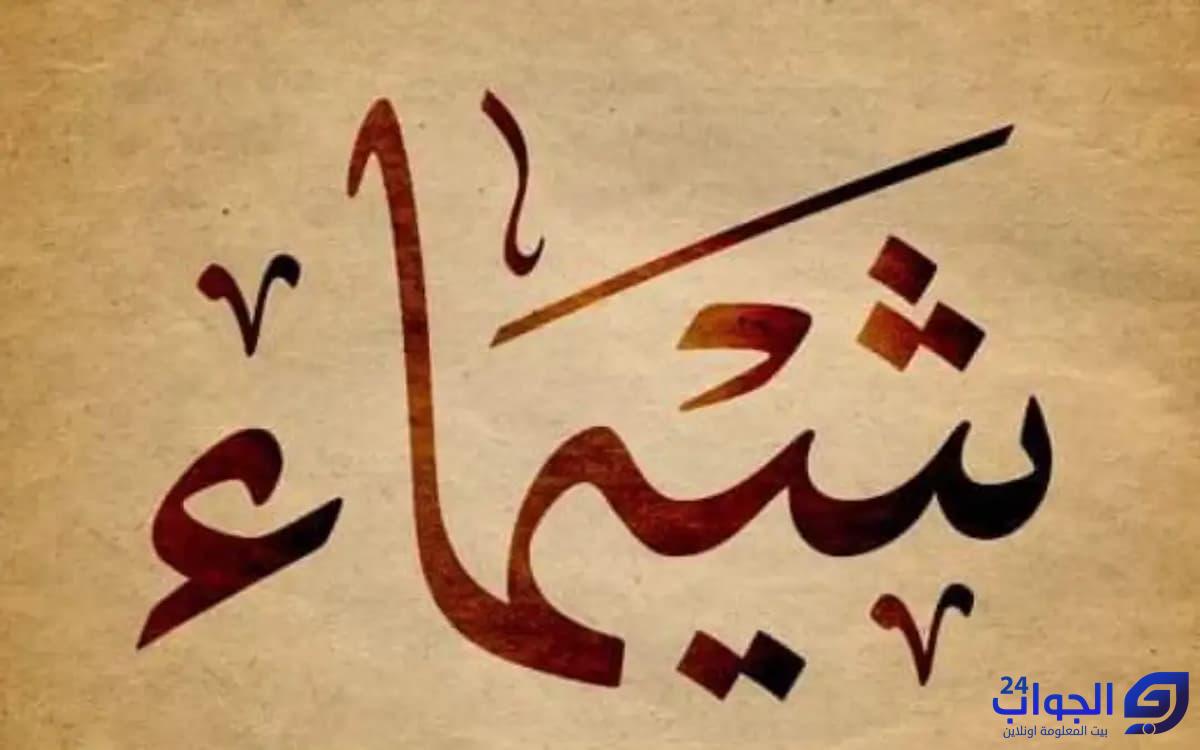 شَيْمَاء
الجواب 24
بيت المعلومة اونلاين